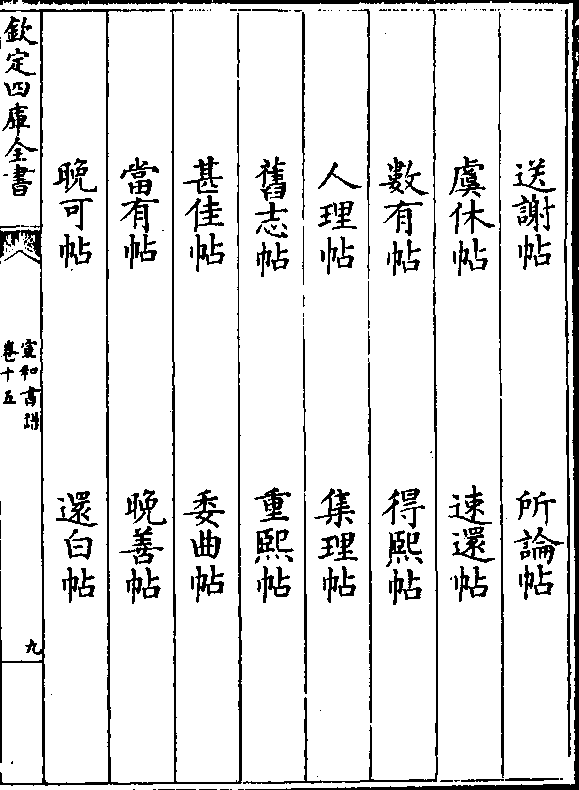 送謝帖　所論帖
虞休帖　速還帖
數有帖　得熙帖
人理帖　集理帖
舊志帖　重熙帖
甚佳帖　委曲帖
當有帖　晚善帖
晚可帖　還白帖
欽定四庫全書
宣和書譜
卷十五
九